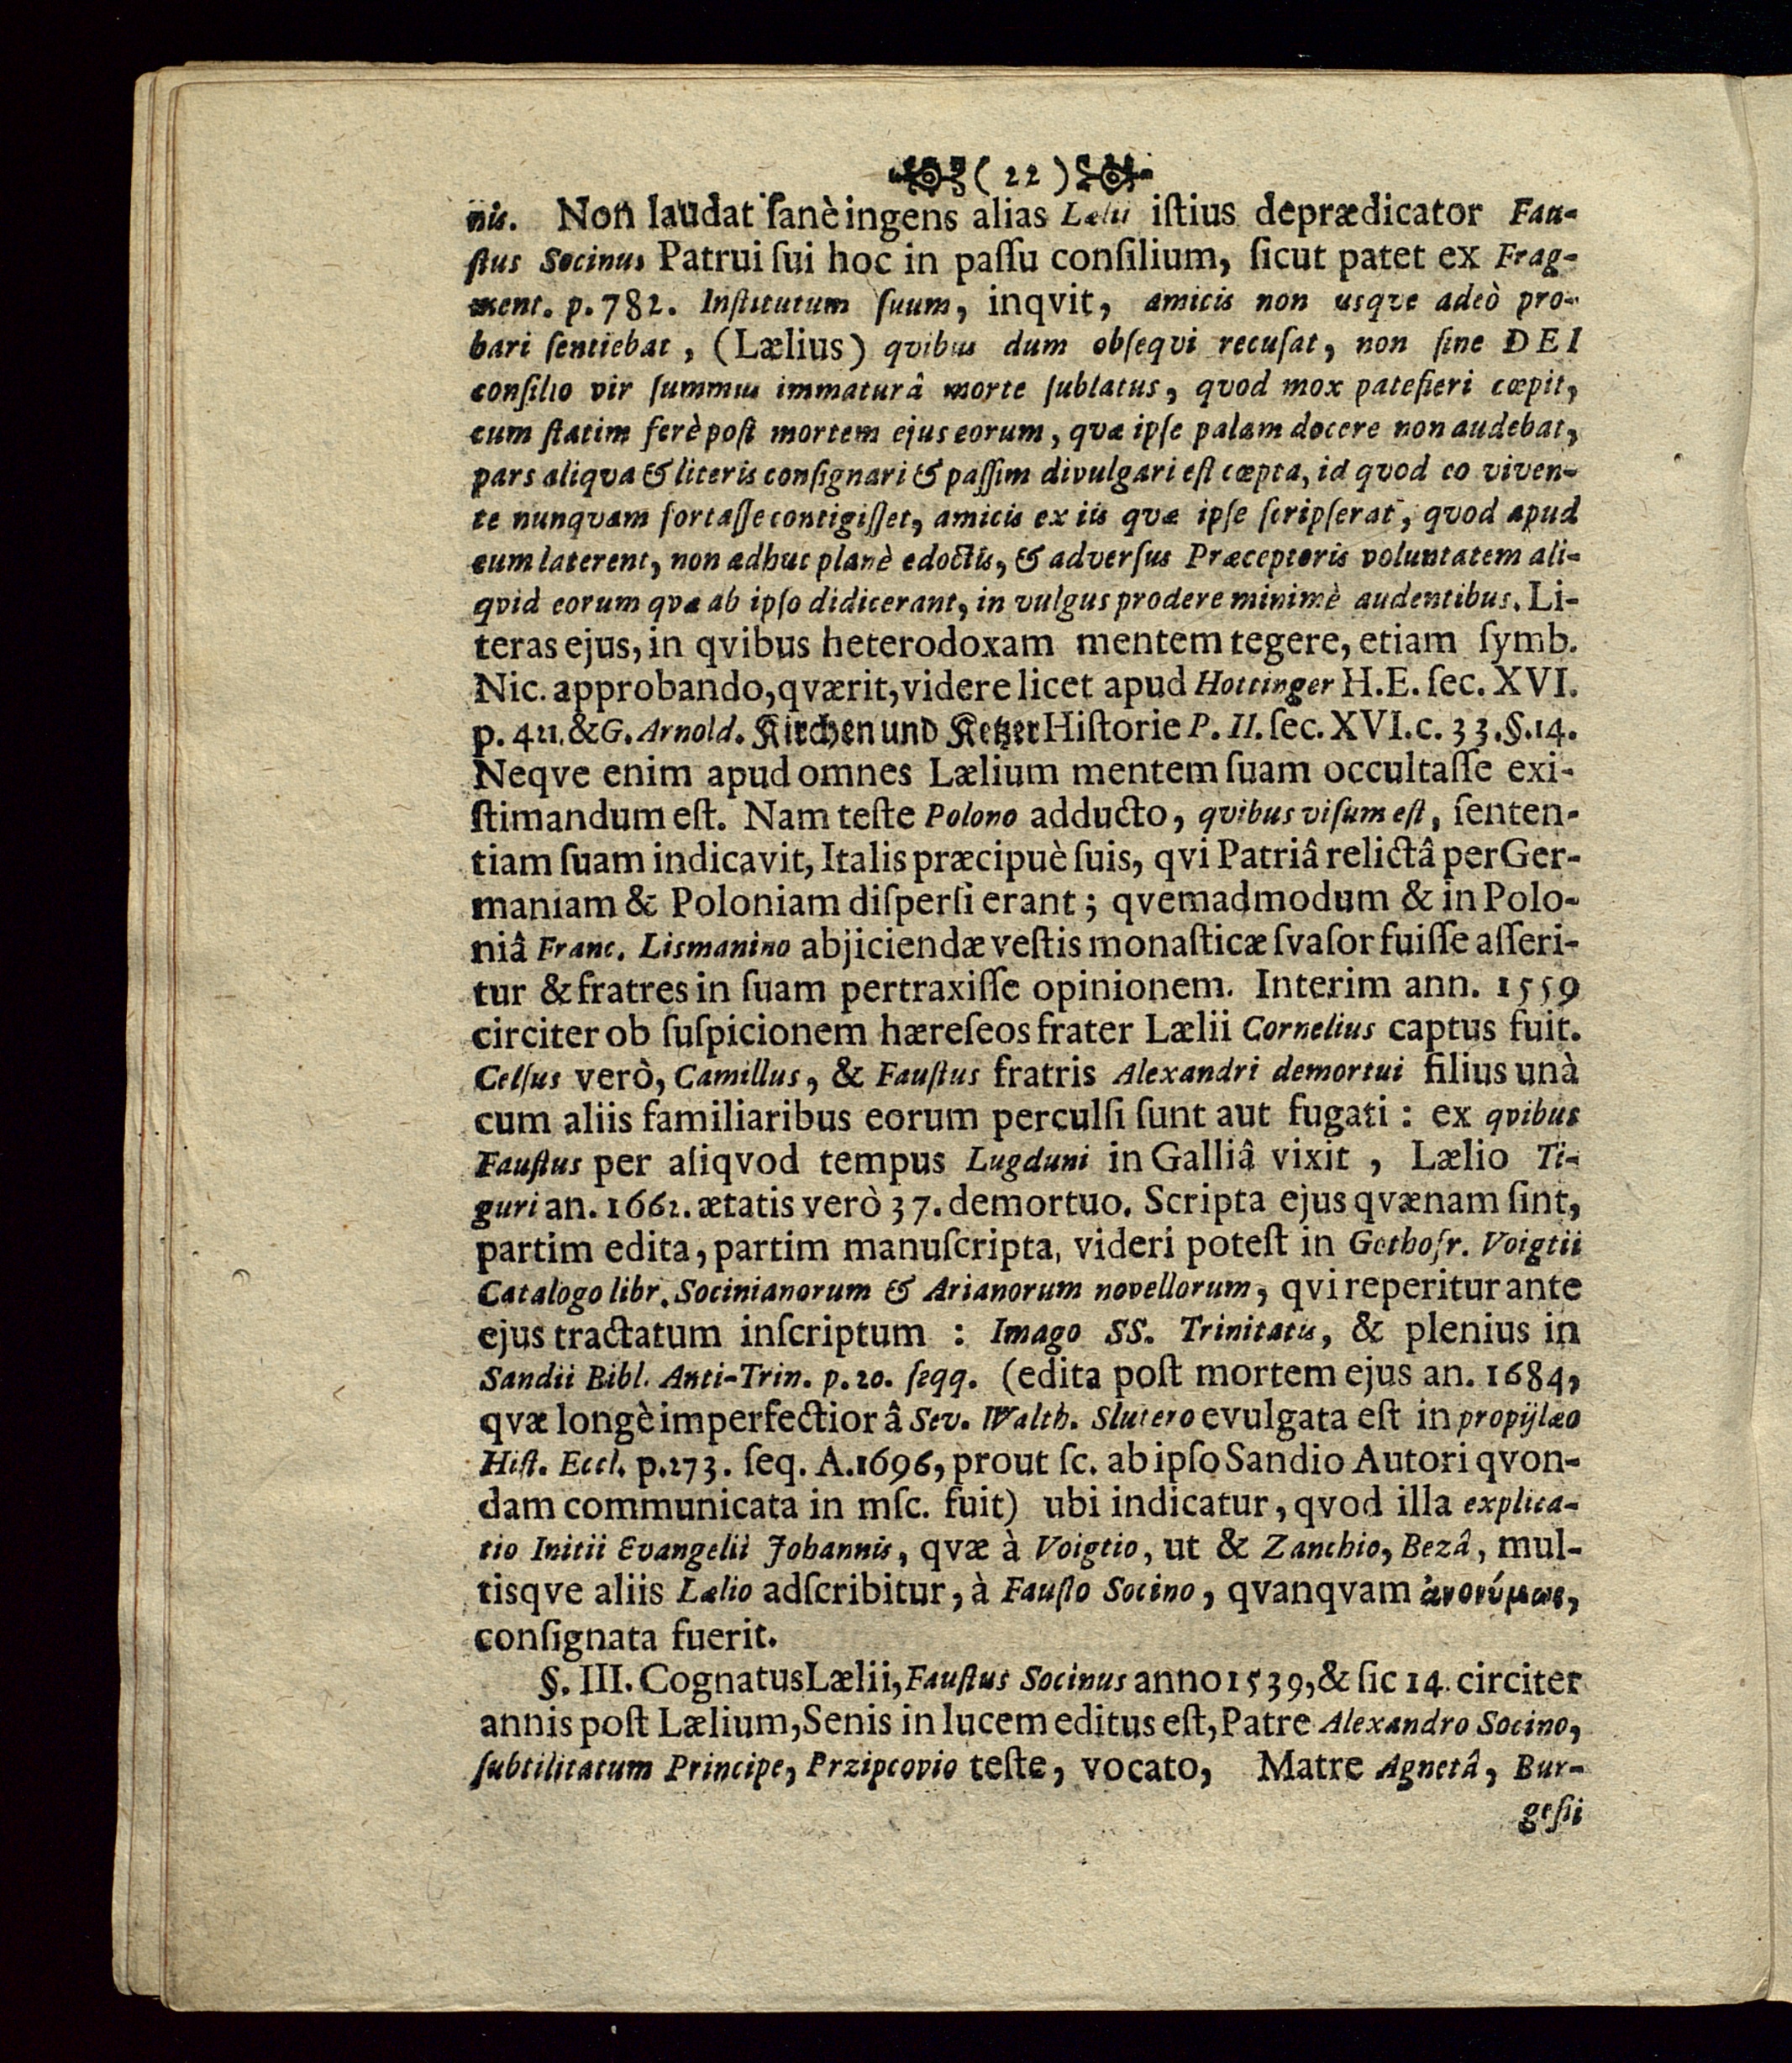 ( 22 )
nis. Non laudat ſanè ingens alias Lælii iſtius deprædicator Fau-
ſtus Socinus Patrui ſui hoc in paſſu conſilium, ſicut patet ex Frag-
ment. p. 782. Inſtitutum ſuum, inqvit, amicis non usqve adeò pro-
bari ſentiebat, (Lælius) qvibus dum obſeqvi recuſat, non ſine DEI
conſilio vir ſummus immaturâ morte ſublatus, qvod mox patefieri cœpit,
cum ſtatim ferè poſt mortem ejus eorum, qvæ ipſe palam docere non audebat,
pars aliqva & literis conſignari & paſſim divulgari eſt cœpta, id qvod eo viven-
te nunqvam fortaſſe contigiſſet, amicis ex iis qvæ ipſe ſcripſerat, qvod apud
eum laterent, non adhuc planè edoctis, & adverſus Præceptoris voluntatem ali-
qvid eorum qvæ ab ipſo didicerant, in vulgus prodere minimè audentibus. Li-
teras ejus, in qvibus heterodoxam mentem tegere, etiam ſymb.
Nic. approbando, qværit, videre licet apud Hottinger H.E. ſec. XVI.
p. 421. & G. Arnold. Kirchen und Ketzer Hiſtorie P. II. ſec. XVI. c. 33. §. 14.
Neqve enim apud omnes Lælium mentem ſuam occultaſſe exi-
ſtimandum eſt. Nam teſte Polono adducto, qvibus viſum eſt, ſenten-
tiam ſuam indicavit, Italis præcipuè ſuis, qvi Patriâ relictâ per Ger-
maniam & Poloniam diſperſi erant; qvemadmodum & in Polo-
niâ Franc. Lismanino abjiciendæ veſtis monaſticæ ſvaſor fuiſſe aſſeri-
tur & fratres in ſuam pertraxiſſe opinionem. Interim ann. 1559
circiter ob ſuſpicionem hæreſeos frater Lælii Cornelius captus fuit.
Celſus verò, Camillus, & Fauſtus fratris Alexandri demortui filius unà
cum aliis familiaribus eorum perculſi ſunt aut fugati: ex qvibus
Fauſtus per aliqvod tempus Lugduni in Galliâ vixit, Lælio Ti-
guri an. 1662. ætatis verò 37. demortuo. Scripta ejus qvænam ſint,
partim edita, partim manuſcripta, videri poteſt in Gothofr. Voigtii
Catalogo libr. Socinianorum & Arianorum novellorum, qvi reperitur ante
ejus tractatum inſcriptum: Imago SS. Trinitatis, & plenius in
Sandii Bibl. Anti-Trin. p. 20. ſeqq. (edita poſt mortem ejus an. 1684,
qvæ longè imperfectior â Sev. Walth. Slutero evulgata eſt in propylæo
Hiſt. Eccl. p. 273. ſeq. A. 1696, prout ſc. ab ipſo Sandio Autori qvon-
dam communicata in mſc. fuit) ubi indicatur, qvod illa explica-
tio Initii Evangelii Johannis, qvæ à Voigtio, ut & Zanchio, Bezâ, mul-
tisqve aliis Lælio adſcribitur, à Fauſto Socino, qvanqvam ἀνονύμως,
conſignata fuerit.
§. III. Cognatus Lælii, Fauſtus Socinus anno 1539, & ſic 14. circiter
annis poſt Lælium, Senis in lucem editus eſt, Patre Alexandro Socino,
ſubtilitatum Principe, Przipcovio teſte, vocato, Matre Agnetâ, Bur-
geſii